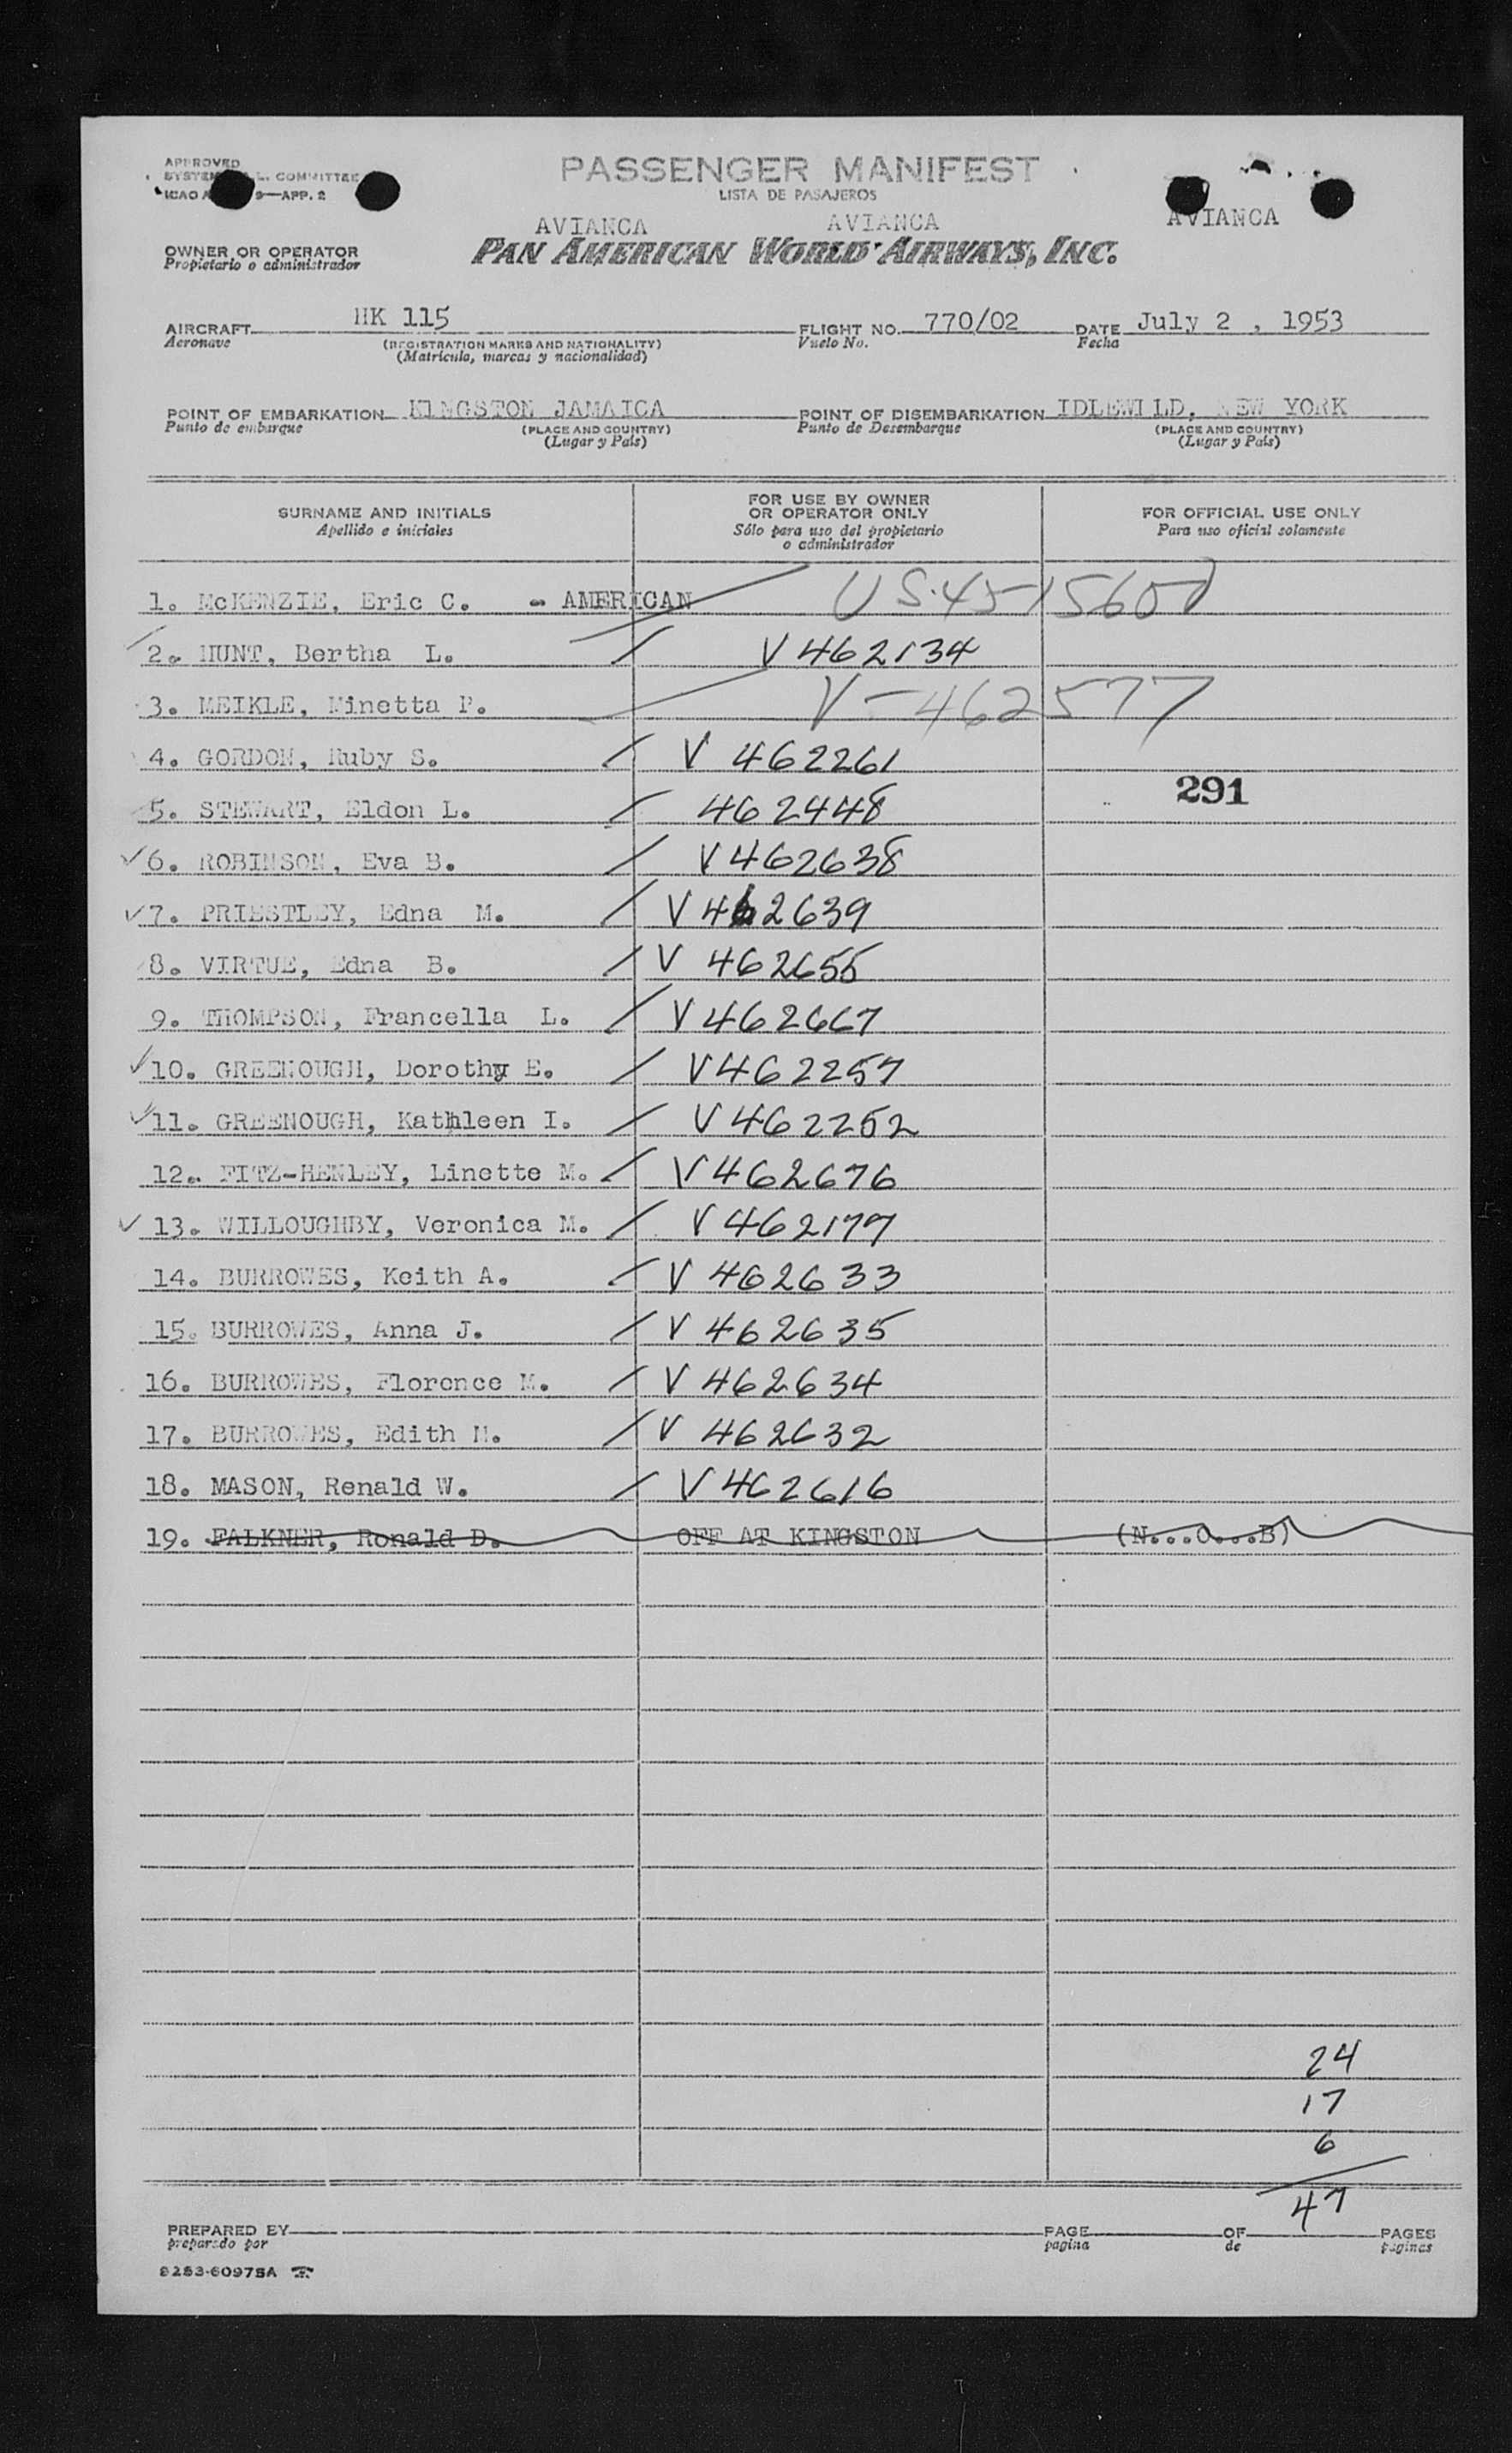 APPROVED
PASSENGER MANIFEST
LISTA DE PASAJEROS
AVIANCA AVIANCA AVIANCA
OWNER OR OPERATOR
Propietario o administrador
PAN AMERICAN WORLD AIRWAYS, INC.
AIRCRAFT HK 115 FLIGHT NO. 770/02 DATE July 2 , 1953
Aeronave (REGISTRATION MARKS AND NATIONALITY) Vuelo No. Fecha
(Matrícula, marcas y nacionalidad)
POINT OF EMBARKATION KINGSTON JAMAICA POINT OF DISEMBARKATION IDLEWILD, NEW YORK
Punto de embarque (PLACE AND COUNTRY) Punto de Desembarque (PLACE AND COUNTRY)
(Lugar y País) (Lugar y País)
SURNAME AND INITIALS FOR USE BY OWNER OR OPERATOR ONLY FOR OFFICIAL USE ONLY
Apellido e iniciales Sólo para uso del propietario o administrador Para uso oficial solamente
1. McKENZIE, Eric C. - AMERICAN
2. HUNT, Bertha L. V 462134
3. MEIKLE, Minetta V-462577
4. GORDON, Ruby S. V 462261
291
5. STEWART, Eldon L. 462448
6. ROBINSON, Eva B. V 462638
7. PRIESTLEY, Edna M. V 462639
8. VIRTUE, Edna B. V 462655
9. THOMPSON, Francella L. V 462667
10. GREENOUGH, Dorothy E. V 462257
11. GREENOUGH, Kathleen I. V 462252
12. FITZ-HENLEY, Linette M. V 462676
13. WILLOUGHBY, Veronica M. V 462177
14. BURROWES, Keith A. V 462633
15. BURROWES, Anna J. V 462635
16. BURROWES, Florence M. V 462634
17. BURROWES, Edith V 462632
18. MASON, Renald W. V 462616
19. FALKNER, Ronald D. OFF AT KINGSTON (N...O...B)
24
17
6
47
PREPARED BY PAGE OF PAGES
preparado por pagina de paginas